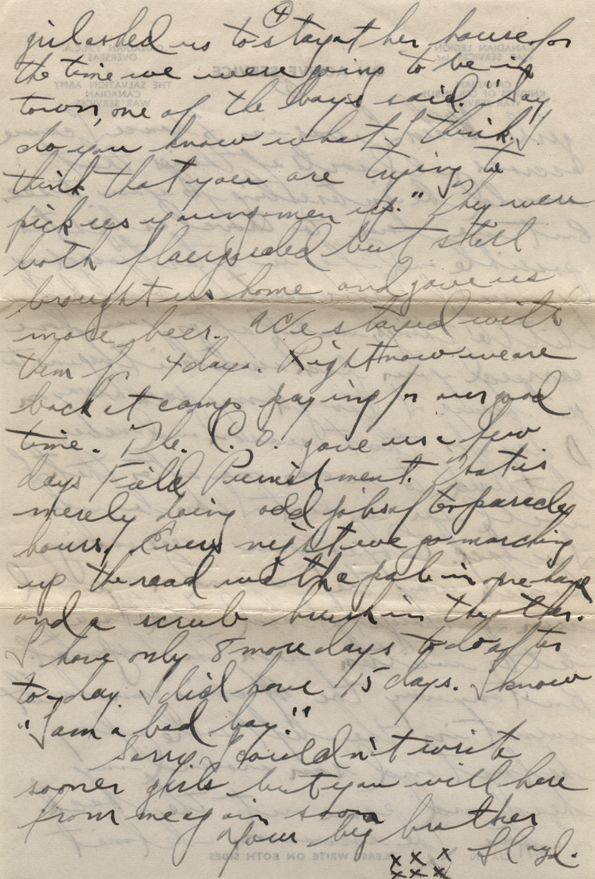 4
girl asked us to stay at her house for
the time we were going to be in
town, one of the boys said. "Say
do you know what I think. I
think that you are trying to
pick us young men up." They were
both flabergasted but still
brought us home and gave us
more beer. We stayed with
them for 4 days. Right now we are
back at camp paying for our good
time. The C.O. gave us a few
days Field Punishment. That is
merely doing odd jobs after parade
hours. Every night we go marching
up the road with a pail in one hand
and a scrub brush in the other.
I have only 8 more days to do after
to-day. I did have 15 days. I know
"I am a bad boy."
Sorry I couldn't write
sooner girls but you will here
from me again soon
Your big brother
Lloyd.
x x x
x x x